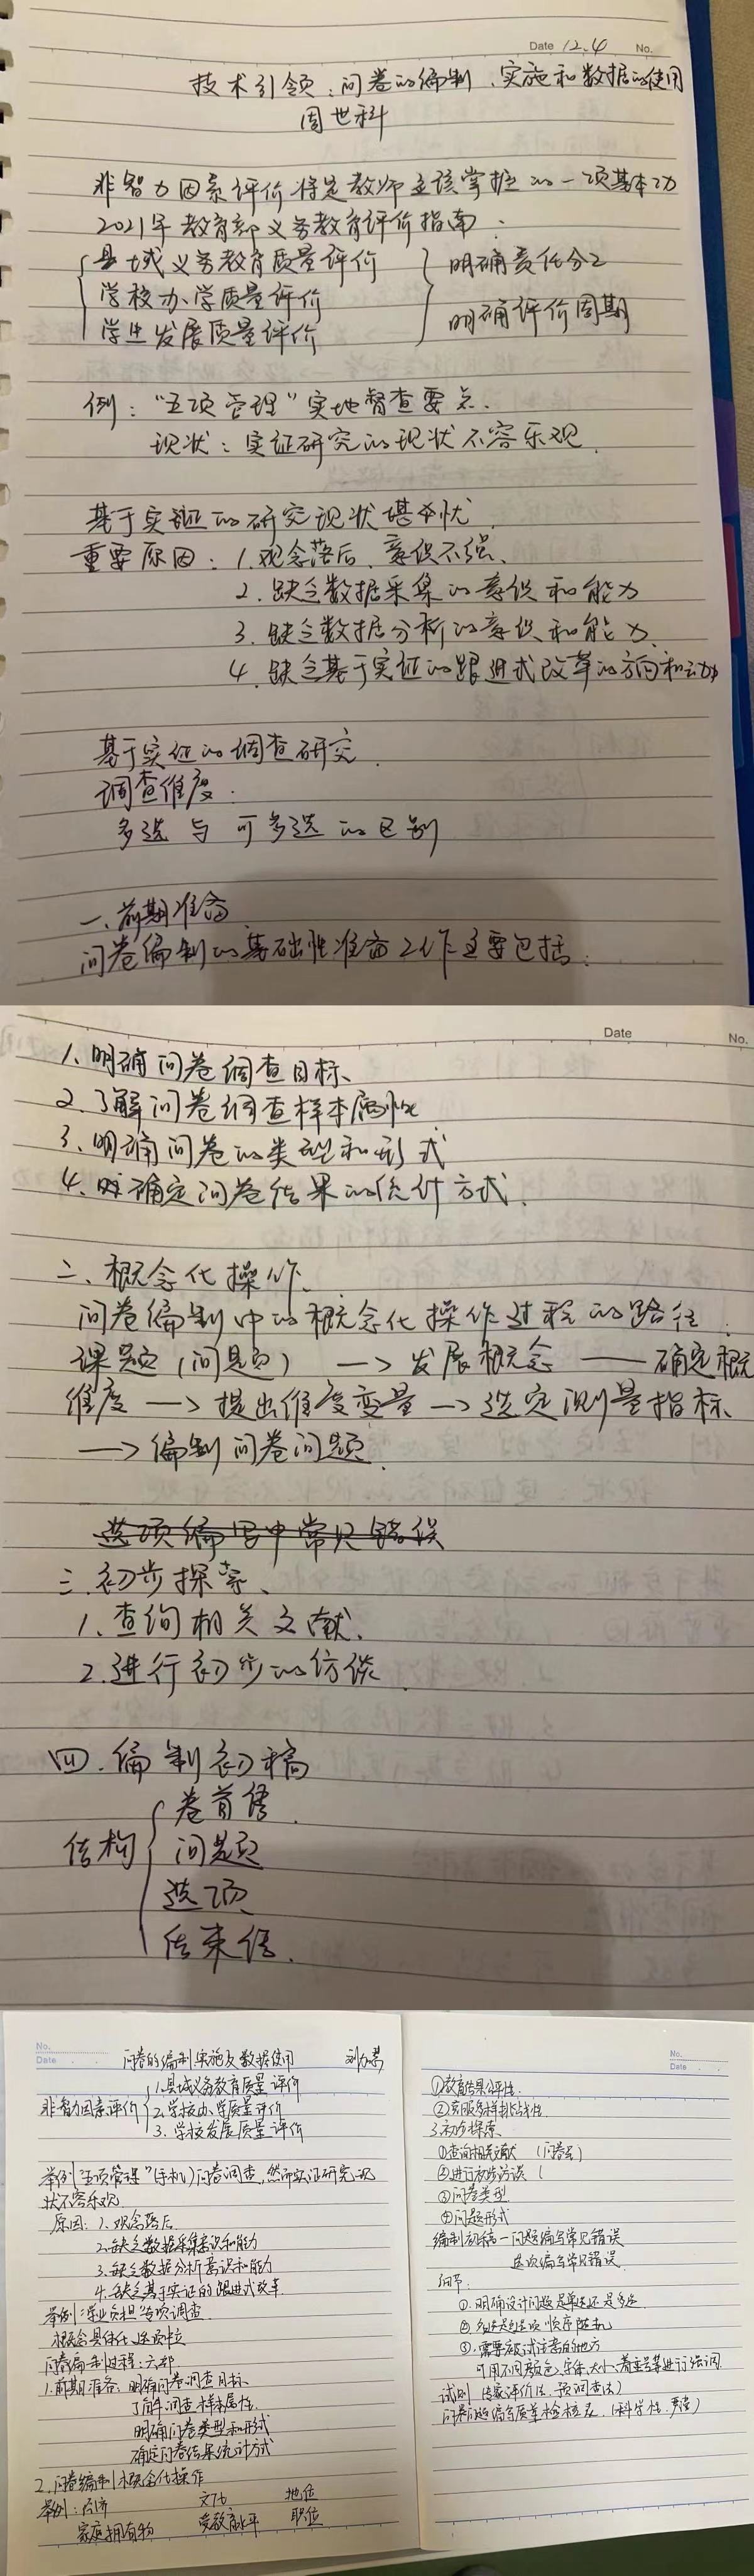 Date 12.4 No.
技术引领:问卷的编制、实施和数据的使用
周世科
非智力因素评价将是教师应该掌握的一项基本功
2021年教育部义务教育评价指南:
县域义务教育质量评价
学校办学质量评价
学生发展质量评价
明确责任分工
明确评价周期
例:“五项管理”实地督查要点.
现状:实证研究的现状不容乐观.
基于实证的研究现状堪忧.
重要原因:1.观念落后、意识不强、
2.缺乏数据采集的意识和能力
3.缺乏数据分析的意识和能力.
4.缺乏基于实证的跟进式改革的方向和动力
基于实证的调查研究.
调查维度:
多选与可多选的区别
一、前期准备
问卷编制的基础性准备工作主要包括:
Date No.
1、明确问卷调查目标、
2、了解问卷调查样本属性
3、明确问卷的类型和形式
4、确定问卷结果的统计方式.
二、概念化操作、
问卷编制中的概念化操作过程的路径:
课题(问题) → 发展概念 — 确定概念
维度 → 提出维度变量 → 选定测量指标
→ 编制问卷问题.
选项编写中常见错误
三.初步探索、
1、查询相关文献.
2.进行初步的访谈.
四.编制初稿
结构
卷首语.
问题
选项
结束语.
No.
Date
问卷的编制实施及数据使用
非智力因素评价
1.县域义务教育质量评价
2.学校办学质量评价
3.学校发展质量评价
举例“五项管理”(手机)问卷调查,然而实证研究现
状不容乐观.
原因:1.观念落后
2.缺乏数据采集意识和能力
3.缺乏数据分析意识和能力
4.缺乏基于实证的跟进式改革.
举例:学业负担专项调查.
概念具体化、选项中立
问卷编制过程:六部
1.前期准备:明确问卷调查目标、
了解调查样本属性.
明确问卷类型和形式
确定问卷结果统计方式
2.问卷编制概念化操作
举例:经济 文化 地位
家庭拥有物 受教育水平 职位
No.
Date
①教育结果公平性.
②克服多样挑战性.
3.初步探索.
①查询相关文献
②进行初步访谈
③问卷类型
④问题形式
编制初稿—问题编写常见错误
选项编写常见错误.
细节:
①.明确设计问题是单选还是多选.
②多选是选项顺序随机
③.需要被试注意的地方
可用不同颜色、字体、大小、着重号等进行强调.
试测(专家评价法、预调查法)
问卷问题编写质量检核表.(科学性.